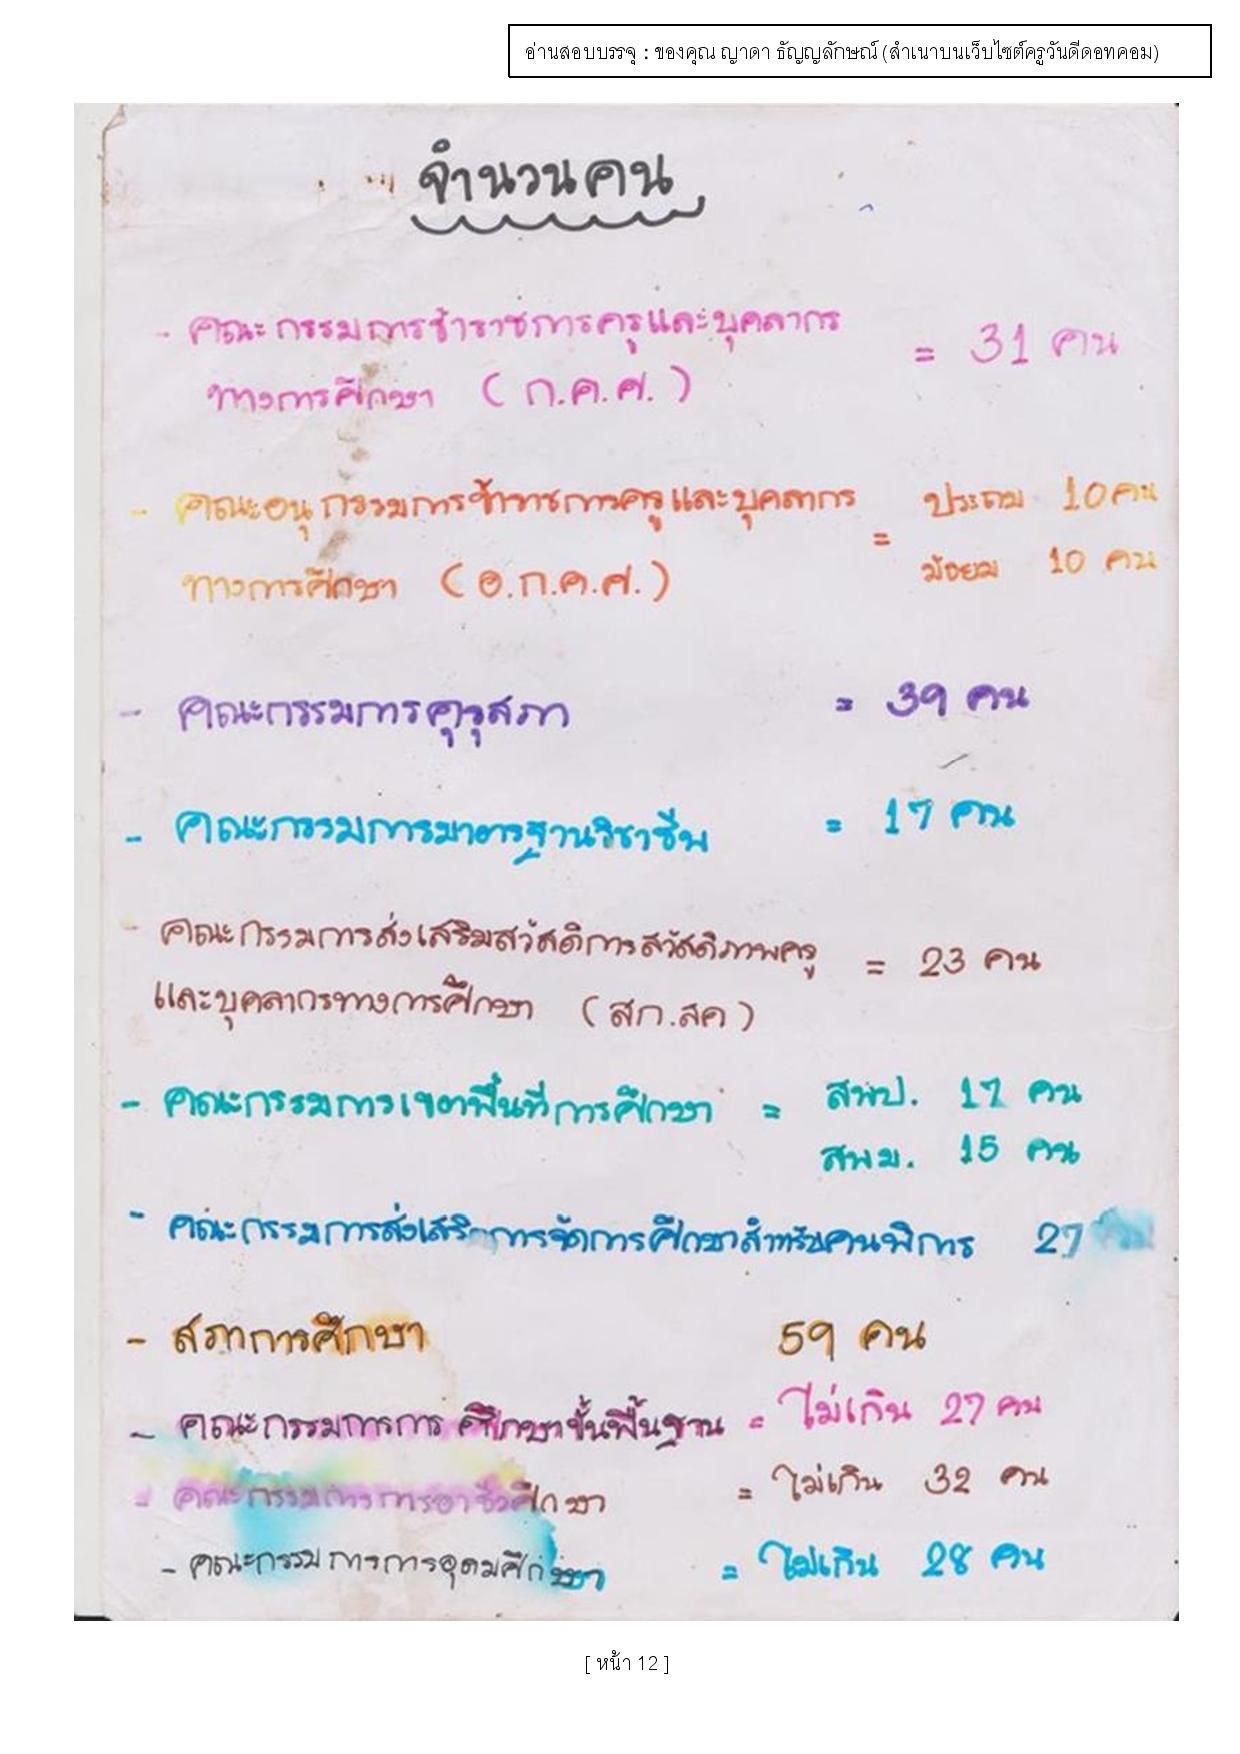 อ่านสอบบรรจุ : ของคุณ ญาดา ธัญญลักษณ์ (สำเนาบนเว็บไซต์ครูวันดีดอทคอม)
จำนวนคน
- คณะกรรมการข้าราชการครูและบุคลากร = 31 คน
ทางการศึกษา (ก.ค.ศ.)
- คณะอนุกรรมการข้าราชการครูและบุคลากร = ประถม 10 คน
ทางการศึกษา (อ.ก.ค.ศ.) มัธยม 10 คน
- คณะกรรมการคุรุสภา = 39 คน
- คณะกรรมการมาตรฐานวิชาชีพ = 17 คน
- คณะกรรมการส่งเสริมสวัสดิการสวัสดิภาพครู = 23 คน
และบุคลากรทางการศึกษา (สก.สค)
- คณะกรรมการเขตพื้นที่การศึกษา = สพป. 17 คน
สพม. 15 คน
- คณะกรรมการส่งเสริมการจัดการศึกษาสำหรับคนพิการ 27 คน
- สภาการศึกษา 59 คน
- คณะกรรมการการศึกษาขั้นพื้นฐาน = ไม่เกิน 27 คน
- คณะกรรมการการอาชีวศึกษา = ไม่เกิน 32 คน
- คณะกรรมการการอุดมศึกษา = ไม่เกิน 28 คน
[ หน้า 12 ]